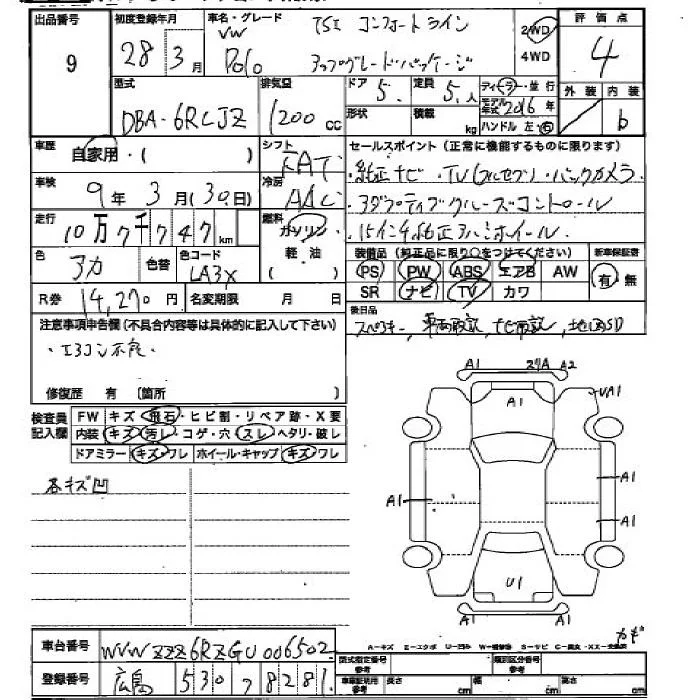 出品番号 初度登録年月 車名・グレード TSI コンフォートライン 評価点
9 28年3月 VW Polo アップグレードパッケージ 2WD 4WD 4
型式 排気量 ドア 定員 ディーラー・並行 外装 内装
DBA-6RCJZ 1200cc 5 5人 モデル年式 2016年 b
形状 積載 kg ハンドル 左・右
車歴 自家用・( ) シフト FAT セールスポイント(正常に機能するものに限ります)
車検 9年3月(30日) 冷房 AAC ・純正ナビ・TV(フルセグ)・バックカメラ
走行 10万7千747km 燃料 ガソリン 軽油 ・アダプティブクルーズコントロール
・15インチ純正アルミホイール
色 アカ 色替 色コード LA3X 装備品(純正品に限り○をつけてください) 新車保証書
PS PW ABS エアB AW 有・無
R券 14,270円 名変期限 月 日 SR ナビ TV カワ
注意事項申告欄(不具合内容等は具体的に記入して下さい) 後日品
・エアコン不良 スペアキー,車両取説,ナビ取説,地図SD
修復歴 有〔箇所 〕
検査員記入欄 FW キズ・飛石・ヒビ割・リペア跡・X要
内装 キズ・汚レ・コゲ・穴・スレ・ヘタリ・破レ
ドアミラー キズ・ワレ ホイール・キャップ キズ・ワレ
各キズ凹
A1 A2
A1 A1
A1 A1
A1
U1
A1 A1
カギ
車台番号 WVWZZZ6RZGU006502
登録番号 広島 530 7 8281
型式指定番号 参考 類別区分番号 参考
車庫証明用 参考 長さ cm 幅 cm 高さ cm